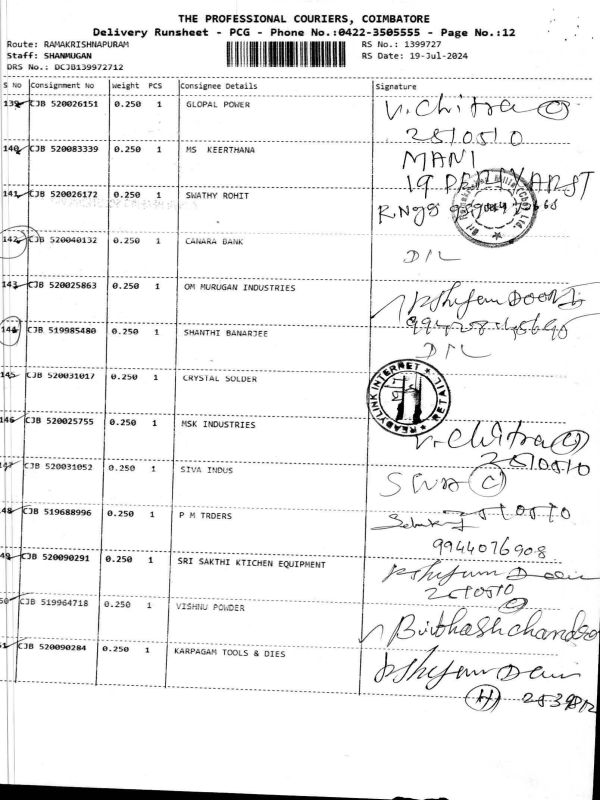 THE PROFESSIONAL COURIERS, COIMBATORE
Delivery Runsheet - PCG - Phone No.:0422-3505555 - Page No.:12
Route: RAMAKRISHNAPURAM
RS No.: 1399727
Staff: SHANMUGAN
RS Date: 19-Jul-2024
DRS No.: DCJB139972712
S No Consignment No Weight PCS Consignee Details Signature
139 CJB 520026151 0.250 1 GLOPAL POWER V. Chitra
2510510
140 CJB 520083339 0.250 1 MS KEERTHANA MANI
141 CJB 520026172 0.250 1 SWATHY ROHIT
142 CJB 520040132 0.250 1 CANARA BANK D/L
143 CJB 520025863 0.250 1 OM MURUGAN INDUSTRIES
144 CJB 519985480 0.250 1 SHANTHI BANARJEE D/L
145 CJB 520031017 0.250 1 CRYSTAL SOLDER READYLINK INTERNET
146 CJB 520025755 0.250 1 MSK INDUSTRIES V. Chitra
2510510
147 CJB 520031052 0.250 1 SIVA INDUS SIVA C
2510510
148 CJB 519688996 0.250 1 P M TRDERS
9944076908
49 CJB 520090291 0.250 1 SRI SAKTHI KTICHEN EQUIPMENT
2510510
50 CJB 519964718 0.250 1 VISHNU POWDER
51 CJB 520090284 0.250 1 KARPAGAM TOOLS & DIES
H